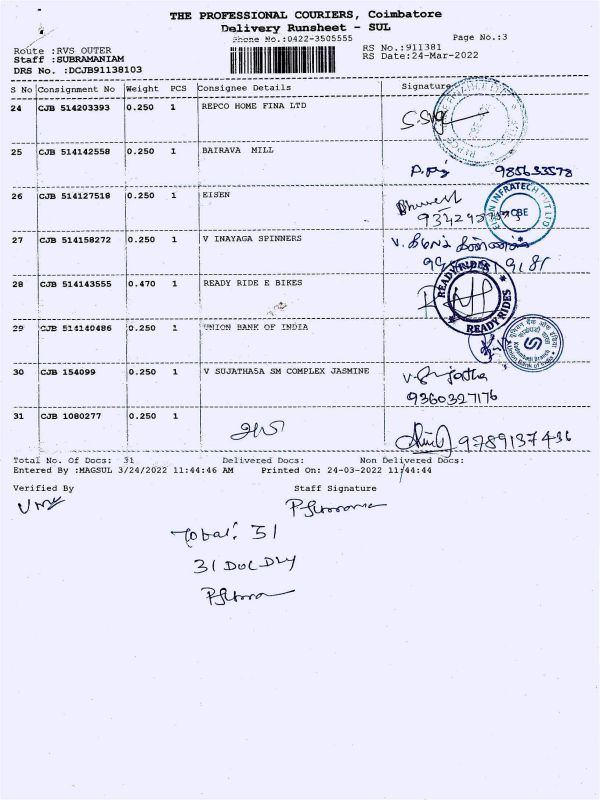 THE PROFESSIONAL COURIERS, Coimbatore
Delivery Runsheet - SUL
Phone No.:0422-3505555
Page No.:3
Route :RVS OUTER
RS No.:911381
Staff :SUBRAMANIAM
RS Date:24-Mar-2022
DRS No. :DCJB91138103
S No Consignment No Weight PCS Consignee Details Signature
24 CJB 514203393 0.250 1 REPCO HOME FINA LTD
25 CJB 514142558 0.250 1 BAIRAVA MILL
26 CJB 514127518 0.250 1 EISEN
EISEN INFRATECH PVT LTD
CBE
27 CJB 514158272 0.250 1 V INAYAGA SPINNERS
28 CJB 514143555 0.470 1 READY RIDE E BIKES
READY RIDES
READY RIDES
29 CJB 514140486 0.250 1 UNION BANK OF INDIA
30 CJB 154099 0.250 1 V SUJATHA5A SM COMPLEX JASMINE
9360327176
31 CJB 1080277 0.250 1
9789137436
Total No. Of Docs: 31 Delivered Docs: Non Delivered Docs:
Entered By :MAGSUL 3/24/2022 11:44:46 AM Printed On: 24-03-2022 11:44:44
Verified By Staff Signature
Total: 31
31 Doc Dly